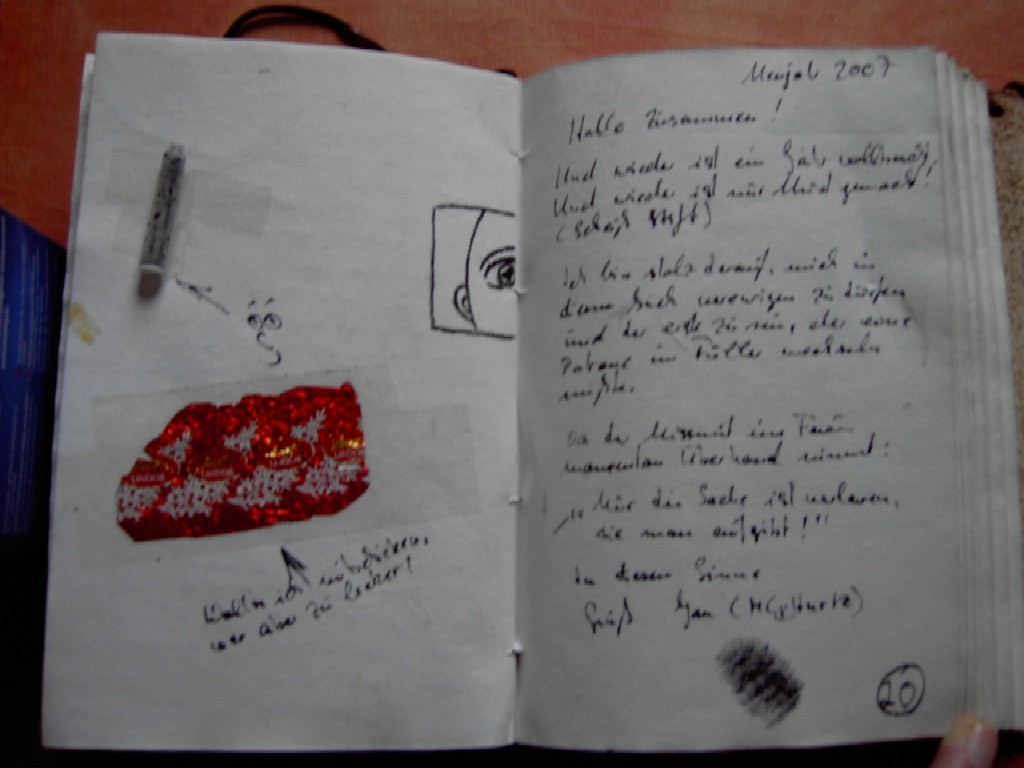 Wollte ich mitschicken,
war aber zu lecker!
Neujahr 2007
Hallo Zusammen!
Und wieder ist ein Jahr vollbracht,
Und wieder ist nur Müll gemacht!
(Scheiß Stift)
Ich bin stolz darauf, mich in
diesem Buch verewigen zu dürfen
und der erste zu sein, der eine
Patrone im Füller wechseln
mußte.
Da der Mißmut im Forum
momentan Überhand nimmt:
"Nur die Sache ist verloren,
die man aufgibt!"
In diesem Sinne
Gruß Jan
20